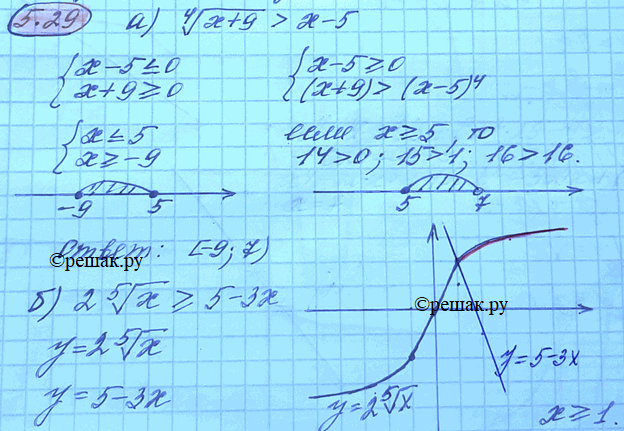 5.29 а) ∜(x+9) > x-5
{ x-5≤0
x+9≥0
{ x-5≥0
(x+9)>(x-5)⁴
{ x≤5
x≥-9
если x≥5, то
14>0; 15>1; 16>16.
-9 5
5 7
ответ: [-9; 7)
©решак.ру
б) 2 ⁵√x ≥ 5-3x
©решак.ру
y=2 ⁵√x
y=5-3x
y=5-3x
y=2 ⁵√x
x≥1.